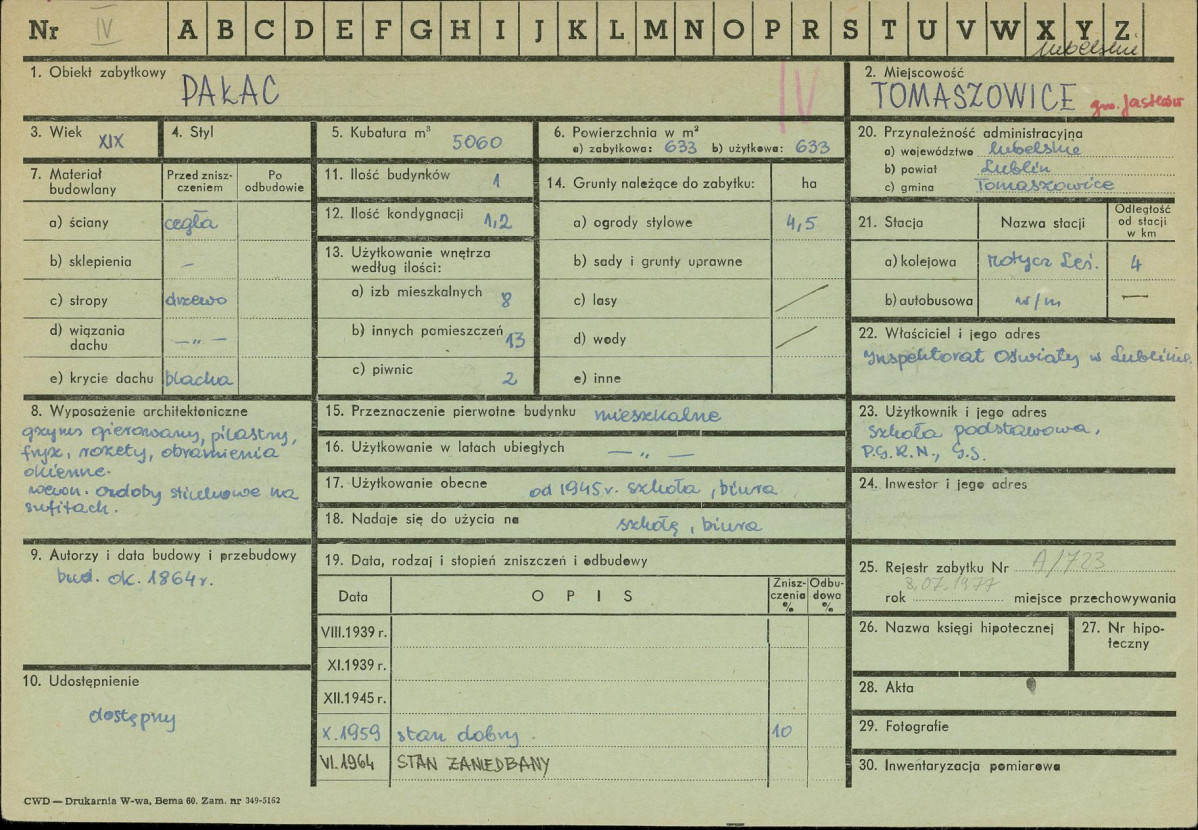 Nr IV A B C D E F G H I J K L M N O P R S T U V W X Y Z
lubelskie
1. Obiekt zabytkowy
PAŁAC
IV
2. Miejscowość
TOMASZOWICE gm. Jastków
3. Wiek
XIX
4. Styl
5. Kubatura m³
5060
6. Powierzchnia w m²
a) zabytkowa: 633 b) użytkowa: 633
7. Materiał budowlany
Przed zniszczeniem
Po odbudowie
a) ściany cegła
b) sklepienia –
c) stropy drzewo
d) wiązania dachu — „ —
e) krycie dachu blacha
8. Wyposażenie architektoniczne
gzyms gierowany, pilastry,
fryz, rozety, obramienia
okienne.
wewn. ozdoby stiukowe na
sufitach.
9. Autorzy i data budowy i przebudowy
bud. ok. 1864 r.
10. Udostępnienie
dostępny
11. Ilość budynków 1
12. Ilość kondygnacji 1,2
13. Użytkowanie wnętrza
według ilości:
a) izb mieszkalnych 8
b) innych pomieszczeń 13
c) piwnic 2
14. Grunty należące do zabytku: ha
a) ogrody stylowe 4,5
b) sady i grunty uprawne
c) lasy
d) wody
e) inne
15. Przeznaczenie pierwotne budynku mieszkalne
16. Użytkowanie w latach ubiegłych — „ —
17. Użytkowanie obecne od 1945 r. szkoła, biura
18. Nadaje się do użycia na szkołę, biura
19. Data, rodzaj i stopień zniszczeń i odbudowy
Data OPIS Zniszczenia % Odbudowa %
VIII.1939 r.
XI.1939 r.
XII.1945 r.
X.1959 stan dobry. 10
VI.1964 STAN ZANIEDBANY
20. Przynależność administracyjna
a) województwo lubelskie
b) powiat Lublin
c) gmina Tomaszowice
21. Stacja Nazwa stacji Odległość od stacji w km
a) kolejowa Motycz Leś. 4
b) autobusowa w/m —
22. Właściciel i jego adres
Inspektorat Oświaty w Lublinie.
23. Użytkownik i jego adres
szkoła podstawowa,
P.G.R.N., G.S.
24. Inwestor i jego adres
25. Rejestr zabytku Nr A/723
8.07.1977
rok miejsce przechowywania
26. Nazwa księgi hipotecznej
27. Nr hipoteczny
28. Akta
29. Fotografie
30. Inwentaryzacja pomiarowa
CWD — Drukarnia W-wa, Bema 60. Zam. nr 349-5162